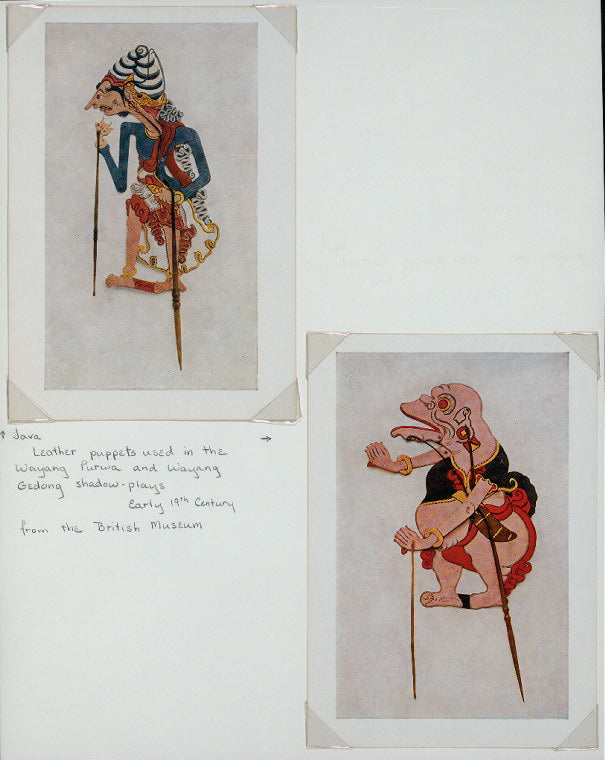 ↑ Java →
Leather puppets used in the
Wayang Purwa and Wayang
Gedong shadow-plays
Early 19th Century
from the British Museum